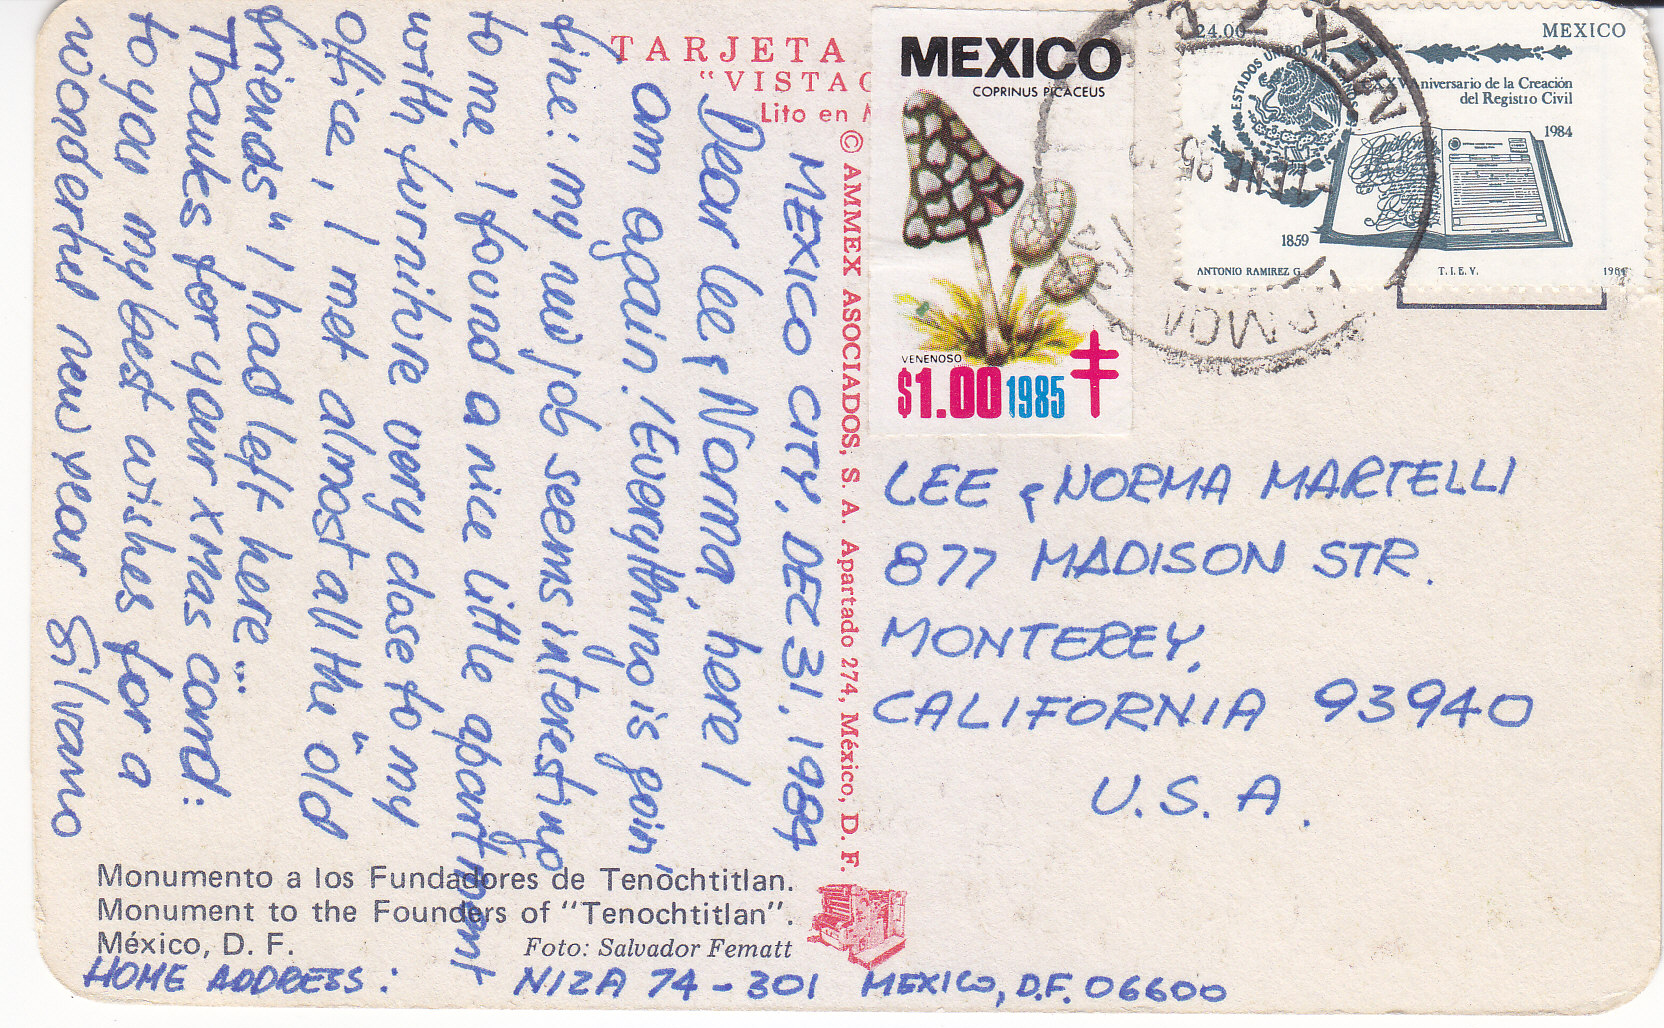 TARJETA
"VISTAC
Lito en M
© AMMEX ASOCIADOS, S. A. Apartado 274, México, D. F.
MEXICO CITY, DEZ 31. 1984
Dear Lee & Norma, here I
am again! Everything is goin'
fine: my new job seems interesting
to me, I found a nice little apartment
with furniture very close to my
office, I met almost all the "old
friends" I had left here...
Thanks for your xmas card:
to you my best wishes for a
wonderful new year Silvano
Monumento a los Fundadores de Tenochtitlan.
Monument to the Founders of "Tenochtitlan".
México, D. F. Foto: Salvador Fematt
HOME ADDRESS: NIZA 74-301 MEXICO, D.F. 06600
MEXICO
COPRINUS PICACEUS
VENENOSO
$1.00 1985
24.00 MEXICO
ESTADOS UNIDOS MEXICANOS
XV Aniversario de la Creación
del Registro Civil
1984
1859
ANTONIO RAMIREZ G. T. I. E. V. 1984
MEX
ENE 85
LEE & NORMA MARTELLI
877 MADISON STR.
MONTEREY,
CALIFORNIA 93940
U.S.A.